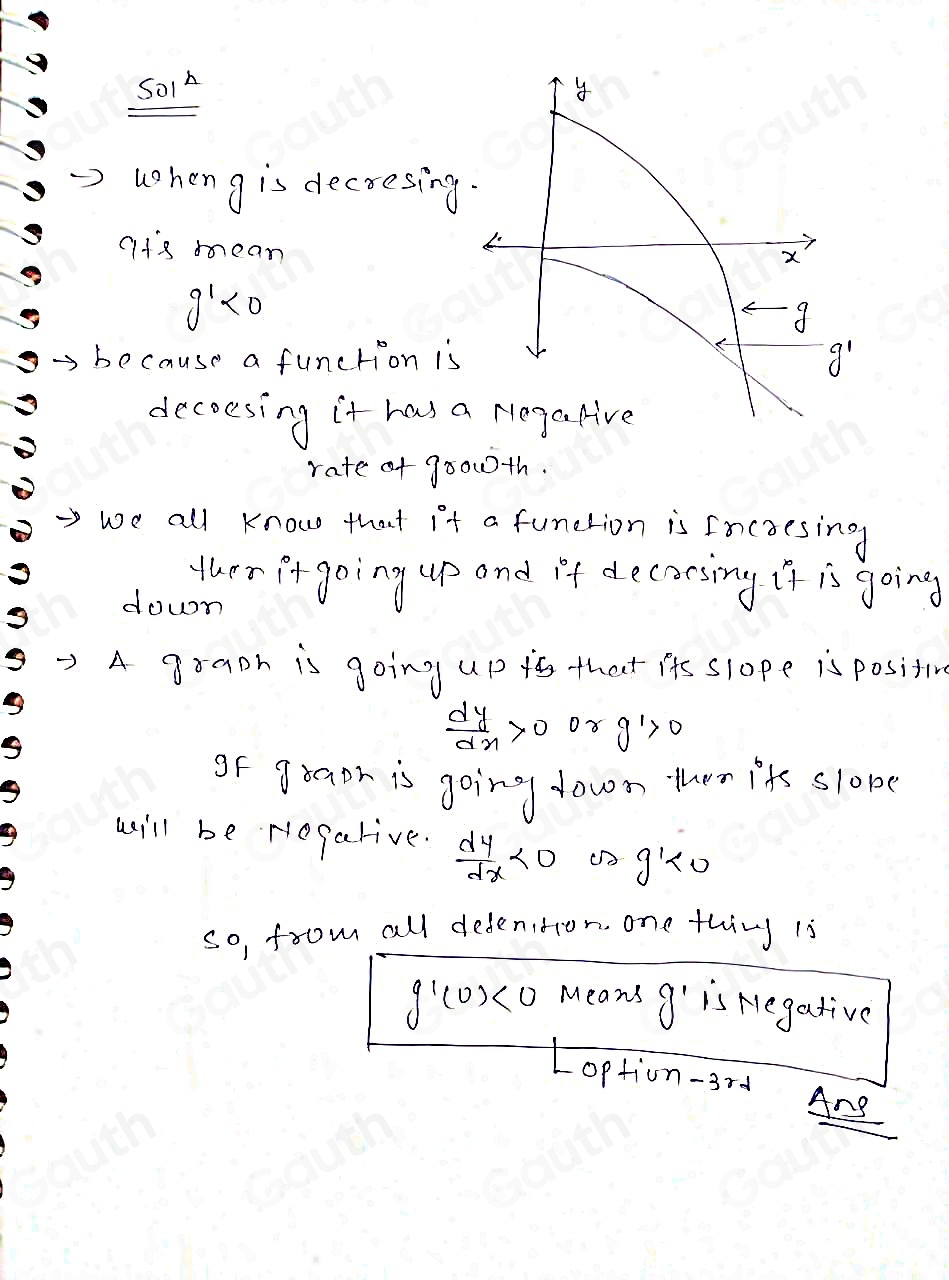 Solⁿ
y
→ When g is decresing.
x
It's mean
g' < 0
← g
→ because a function is
g'
decresing it has a Negative
rate of growth.
→ we all know that it a function is Incresing
then it going up and if decresing it is going
down
→ A graph is going up is that its slope is positive
dy/dx > 0 or g' > 0
If graph is going down then its slope
will be Negative. dy/dx < 0 or g' < 0
so, from all defenition one thing is
g'(0) < 0 Means g' is Negative
option - 3rd
Ans
Gauth